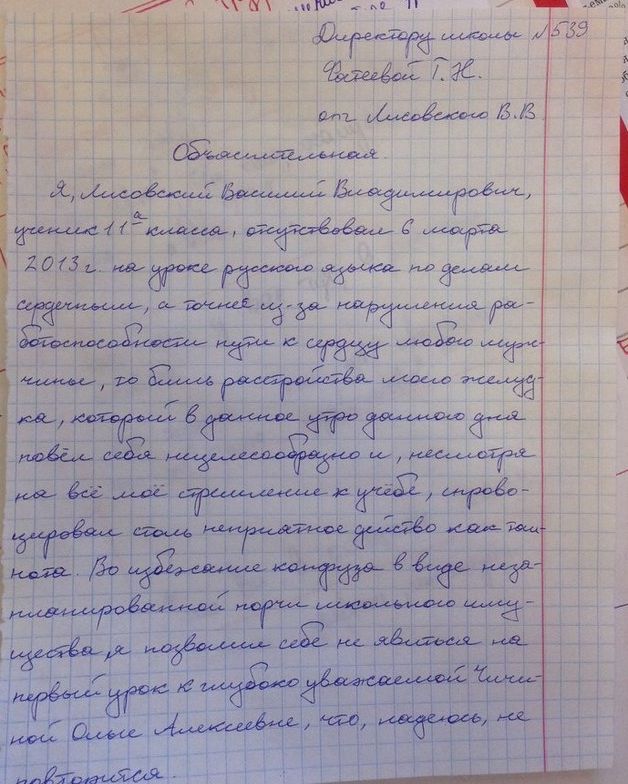 Директору школы №539
Фатеевой Т.Н.
от Лисовского В.В
Объяснительная.
Я, Лисовский Василий Владимирович,
ученик 11а класса, отсутствовал 6 марта
2013г. на уроке русского языка по делам
сердечным, а точнее из-за нарушения ра-
ботоспособности пути к сердцу любого муж-
чины, то бишь расстройства моего желуд-
ка, который в данное утро данного дня
повёл себя нецелесообразно и, несмотря
на всё моё стремление к учёбе, спрово-
цировал столь неприятное действо как тош-
нота. Во избежание конфуза в виде неза-
планированной порчи школьного иму-
щества, я позволил себе не явиться на
первый урок к глубоко уважаемой Чичи-
ной Ольге Алексеевне, что, надеюсь, не
повторится.